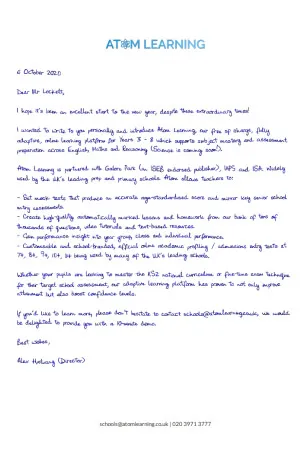 ATOM LEARNING
6 October 2020
Dear Mr Lockett,
I hope it's been an excellent start to the new year, despite these extraordinary times!
I wanted to write to you personally and introduce Atom Learning, our free of charge, fully
adaptive, online learning platform for Years 3 - 8 which supports subject mastery and assessment
preparation across English, Maths and Reasoning (Science is coming soon).
Atom Learning is partnered with Galore Park (an ISEB endorsed publisher), IAPS and ISA. Widely
used by the UK's leading prep and primary schools, Atom allows teachers to:
- Set mock tests that produce an accurate age-standardised score and mirror key senior school
entry assessments.
- Create high-quality automatically marked lessons and homework from our bank of tens of
thousands of questions, video tutorials and text-based resources.
- Gain performance insight into year group, class and individual performance.
- Customisable and school-branded, official online academic profiling / admissions entry tests at
7+, 8+, 9+, 10+, 11+ being used by many of the UK's leading schools.
Whether your pupils are looking to master the KS2 national curriculum or fine-tune exam technique
for their target school assessment, our adaptive learning platform has proven to not only improve
attainment but also boost confidence levels.
If you'd like to learn more, please don't hesitate to contact schools@atomlearning.co.uk, we would
be delighted to provide you with a 10-minute demo.
Best wishes,
Alex Hatvany (Director)
schools@atomlearning.co.uk | 020 3971 3777